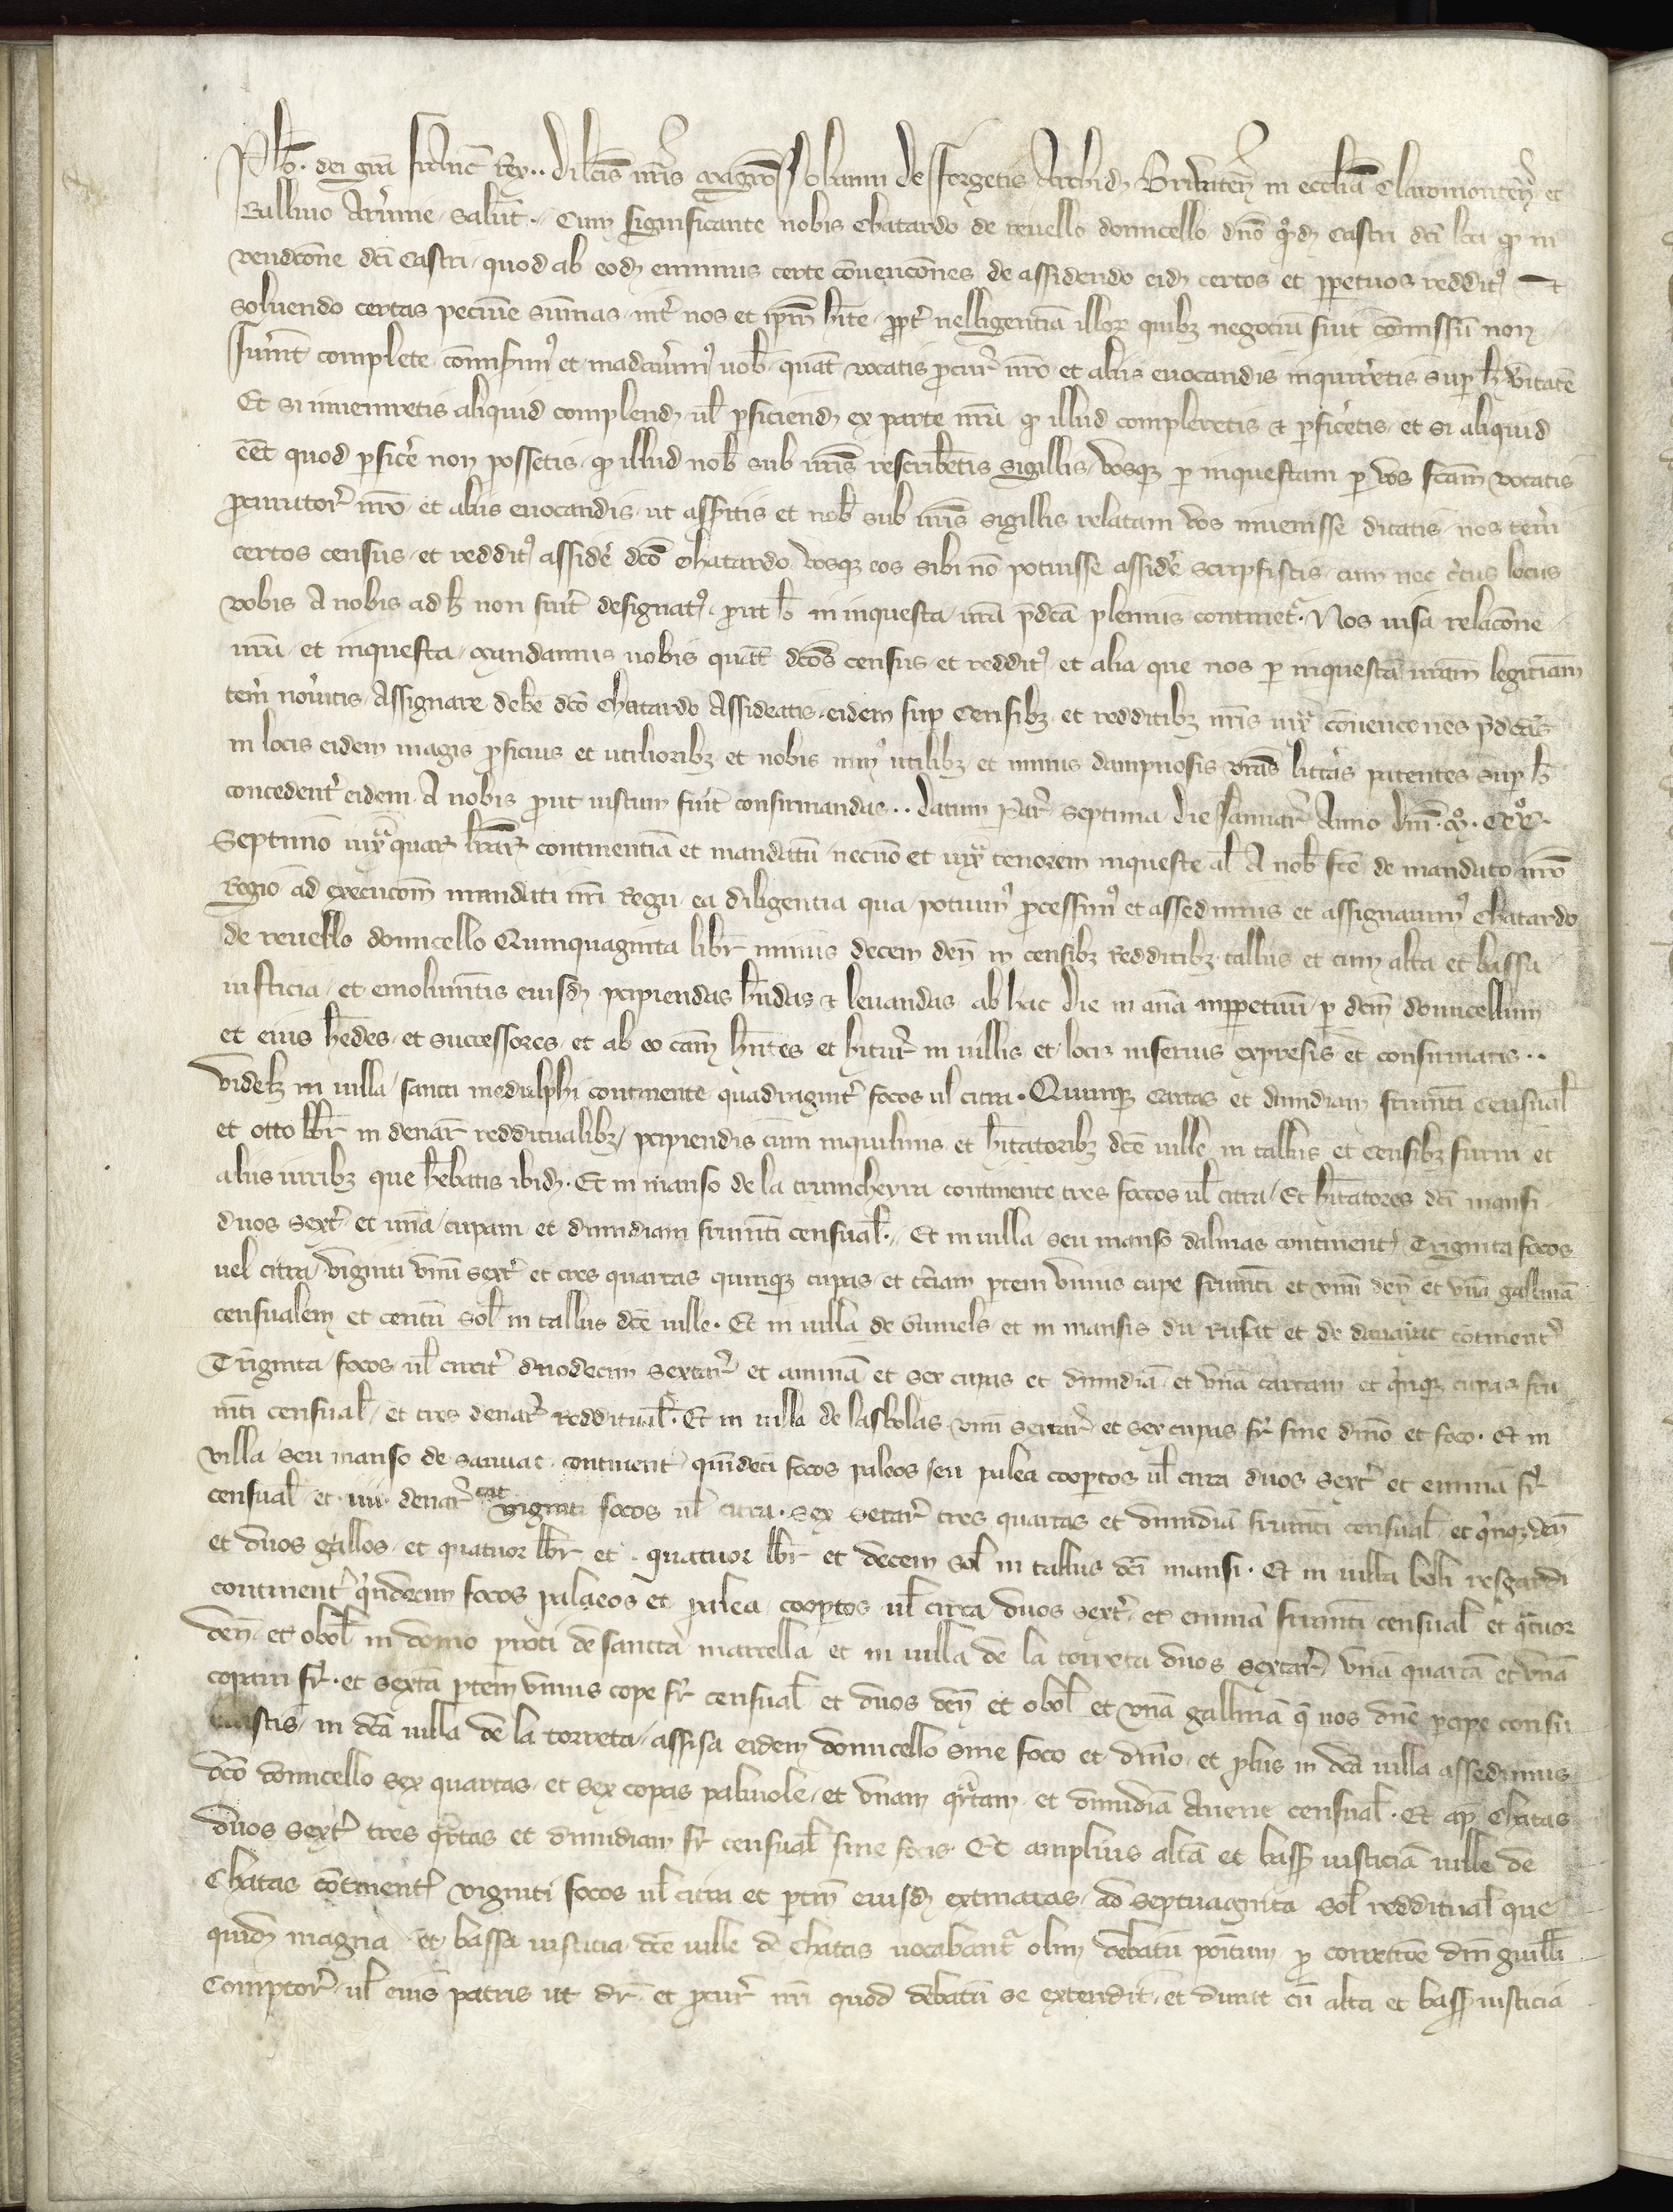 Ph̃o. dei gr̃a franc̃ Rex.. dil̃cis nr̃is mag̃ro Johanni de Forgetis Archid̃ Brivateñ in eccl̃ia Claromonteñ et
Ballivo Arv̾nie salut̃.. Cum significante nobis Chatardo de revello domicello dño q̃nd̃ Castri dc̃i loci q̃ in
vendic̃one dc̃i Castri quod ab eod̃ emimus certe c̃ovenc̃ones de assidendo eid̃ certos et p̱petuos reddit⁹ et
solvendo certas pecunie sũmas int̾ nos et ip̃m h̃ite p̱pt̾ nelligenciã illor̃ quibꝫ negociũ fuit c̃omissũ non
fũint complete cõmisim⁹ et mãdavim⁹ vob̃ quat̾ vocatis p̱cur̃ nr̃o et aliis evocandis inquireretis sup̱ h̃ v̾itatẽ
Et si inveniretis aliquid complend̃ vl̃ p̱ficiend̃ ex parte nr̃a q̃ illud compleretis et p̱fic̾etis et si aliquid
eẽt quod p̱fic̾e non possetis q̃ illud nob̃ sub vr̃is rescriberetis sigillis vosqꝫ p̱ inquestam p̱ vos fc̃am vocatis
p̱curator̃ nr̃o et aliis evocandis ut ass̾itis et nob̃ sub vr̃is sigillis relatam vos invenisse dicatis nos ten̾i
certos census et reddit⁹ assid̾e dc̃o Chatardo vosqꝫ eos sibi nõ potuisse assid̾e sc̾pisistis cum nec c̾tus locus
vobis A nobis ad h̃ non fuit designat⁹ p̱ut h̃ in inquesta vr̃a p̃dc̃a plenius continet̾. Nos visa relac̃one
vr̃a et inquesta mandamus vobis quat̾ dc̃os census et reddit⁹ et alia que nos p̱ inquestã vr̃am legitiam
ten̾i nov̾itis Assignare deb̾e dc̃o Chatardo Assideatis eidem sup̱ Censibꝫ et redditibꝫ nr̃is iux̾ c̃ovenc̃ones p̃dc̃as
in locis eidem magis p̱ficuis et utilioribꝫ et nobis min⁹ utilibꝫ et minus dampnosis vr̃as litt̾as patentes sup̱ h̃
concedent̾ eidem A nobis p̱ut iustum fuit confirmandas.. datum Par̃ septima die Januar̃ Anno dñi .mº. cccº.
Septimo iux̾ quar̃ lr̃ar̃ continentiã et mandatũ necnõ et iux̾ tenorem inqueste al̃ A nob̃ fc̃e de mandato nr̃o
Regio ad execuc̃onẽ mandati nr̃i Regii ea diligentia qua potuim⁹ p̱cessim⁹ et assedimus et assignavim⁹ Chatardo
de revello domicello Quinquaginta libr̃ minus decem deñ in censibꝫ Redditibꝫ talliis et cum alta et bassa
iusticia et emolumentis eiusd̃ p̱cipiendas h̃endas et levandas ab hac die in ãnea inp̱petuũ p̱ dc̃m domicellum
et eius h̾edes et successores et ab eo cãm h̃ntes et h̃itur̃ in villis et locis inferius expressis et confirmatis..
videlꝫ in villa sancti medulphi continente quadragint̾ focos vl̃ circa. Quinqꝫ Cartas et dimidiam frumti Censual̃
et otto lbr̃ in denar̃ redditualibꝫ p̱cipiendis cum inquilinis et h̃itatoribꝫ dc̃e ville in talliis et Censibꝫ furni et
aliis iuribꝫ que h̃ebatis ibid̃. Et in manso de la truncheyra continente tres foccos vl̃ citra Et h̃itatores dc̃i mansi
duos sext̾ et unã cupam et dimidiam frumti censual̃. Et in villa seu manso dalmas continent̾ Triginta focos
vel citra viginti unũ sext̾ et tres quartas quinqꝫ cupas et t̾ciam p̱tem unius cupe frumti et viiii deñ et unã gallinã
censualem et centũ sol̃ in talliis dc̃e ville. Et in villa de Gumels et in mansis du Rufat et de davayat cõtinent̾
Triginta focos vl̃ circit̾ duodecim sextar̃ et aminã et sex cupas et dimidiã et unã cartam et q̃inqꝫ cupas fru
mti censual̃ et tres denar̃ redditual̃. Et in villa de lasbolas viiii sextar̃ et sex cupas fr̃ sine dñio et foco. Et in
villa seu manso de sauvat continent̾ quĩdeci focos paleos seu palea coop̱tos vl̃ circa duos sext̾ et eminã fr̃
censual̃ et iiii denar̃ viginti focos vl̃ circa. sex setar̃ tres quartas et dimidiã frumti censual̃ et q̃inqꝫ deñ
et duos gallos et quatuor lbr̃ et . quatuor lbr̃ et decem sol̃ in talliis dc̃i mansi. Et in villa beli resgardi
continent̾ q̃indecim focos palaeos et palea coop̱tos vl̃ circa duos sext̾ et eminã frumti censual̃ et q̃tuor
deñ et obol̃ in domo p̱roti de sancta marcella et in villa de la torreta duos sextar̃ unã quartã et unã
copam fr̃. et sextã p̱tem unius cope fr̃ censual̃ et duos deñ et obol̃ et unã gallinã q̃ nos dñe p̱cipe consu
evistis in dc̃a villa de la torreta assisa eidem domicello sine foco et dñio et p̱lus in dc̃a villa assedimus
dc̃o domicello sex quartas et sex copas palmole et unam q̃rtam et dimidiã Avene censual̃. Et ap̃ Chatas
duos sext̾ tres q̃rtas et dimidiam fr̃ censual̃ sine focis. Et amplius altã et bass̃ iusticiã ville de
Chatas cõtinent̾ viginti focos vl̃ citra et p̱tin̾ eiusd̃ extimatas ad septuaginta sol̃ redditual̃ que
quid̃ magna et bassa iusticia dc̃e ville de Chatas vocabant̾ olim debatũ p̱oitum p̱ correctõe dñi guill̃i
Comptor̃ vl̃ eius patris ut dr̃ et p̱cur̃ nr̃i quod debatũ se extendit et durat cũ alta et bass̃ iusticia